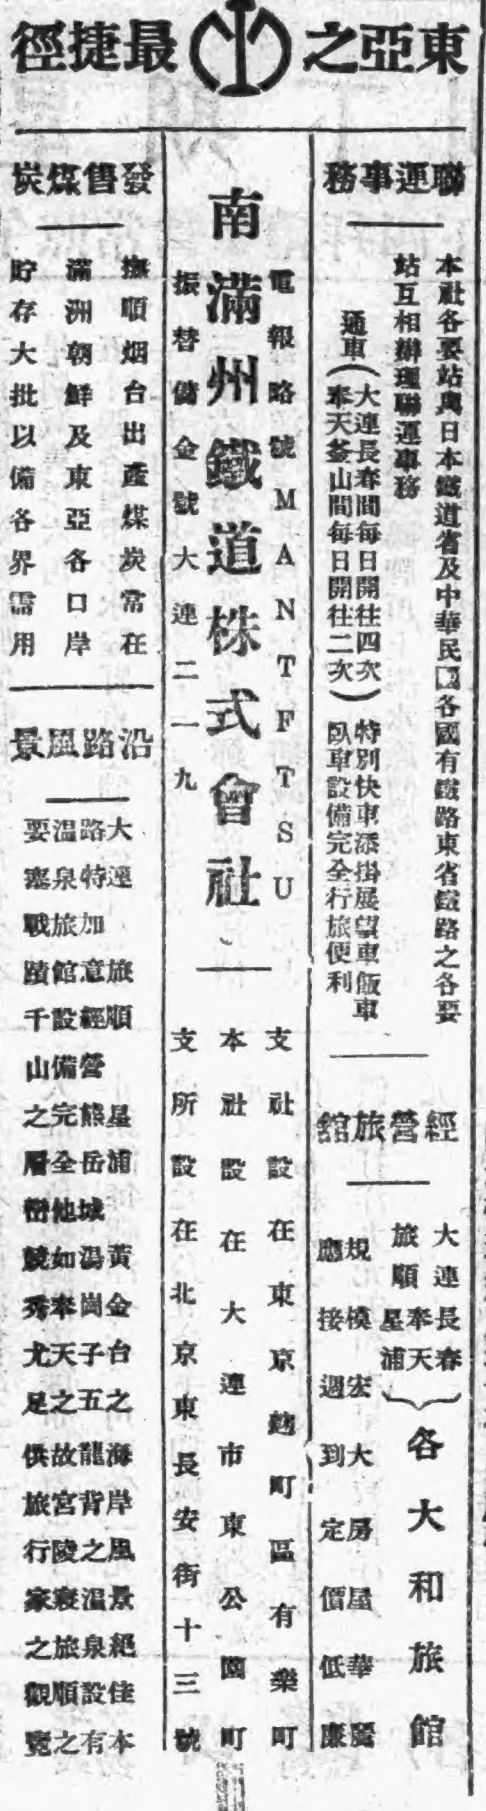 東亞之最捷徑
聯運事務
本社各要站與日本鐵道省及中華民國各國有鐵路東省鐵路之各要
站互相辦理聯運車務
通車(大連長春間每日開往四次
奉天釜山間每日開往二次)
特別快車添掛展望車飯車
臥車設備完全行旅便利
經營旅館
大連長春
奉天
旅順
星浦
各大和旅館
規模宏大房屋華麗
應接週到定價低廉
電報略號MANTFTSU
南滿州鐵道株式會社
振替儲金號大連二一九
支社設在東京麴町區有樂町
本社設在大連市東公園町
支所設在北京東長安街十三號
發售煤炭
撫順烟台出產煤炭常在
滿洲朝鮮及東亞各口岸
貯存大批以備各界需用
沿路風景
大連旅順星浦黃金台之海岸風景絕佳本
路特加意經營熊岳城湯崗子五龍背之溫泉設有
溫泉旅館設備完全他如奉天之故宮陵寢旅順之
要塞戰蹟千山之層巒競秀尤足供旅行家之觀覽